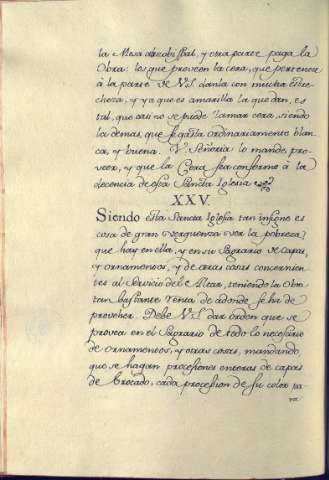 la Mesa Arzobispal, y otra parte paga la
Obra: los que proveen la cera, que pertenece
à la parte de V.S. danla con mucha estre-
cheza, y ya que es amarilla la que dan, es
tal, que casi no se puede llamar cera, siendo
la demas, que se gasta ordinariamente blan-
ca, y buena. V. Señoria lo mande pro-
veer, y que la Cera sea conforme à la
decencia de essa Sancta Iglesia
XXV.
Siendo esta Sancta Iglesia tan insigne es
cosa de gran verguenza ver la pobreza,
que hay en ella, y en su Sagrario de capas,
y ornamentos, y de otras cosas concernien-
tes al Servicio del Altar, teniendo la Obra
tan bastante renta de adonde se ha de
proveher. Debe V.S. dar orden que se
provea en el Sagrario de todo lo necesario
de ornamentos, y otras cosas, mandando,
que se hagan procesiones enteras de capas
de brocado, cada procesion de su color pa-
ra